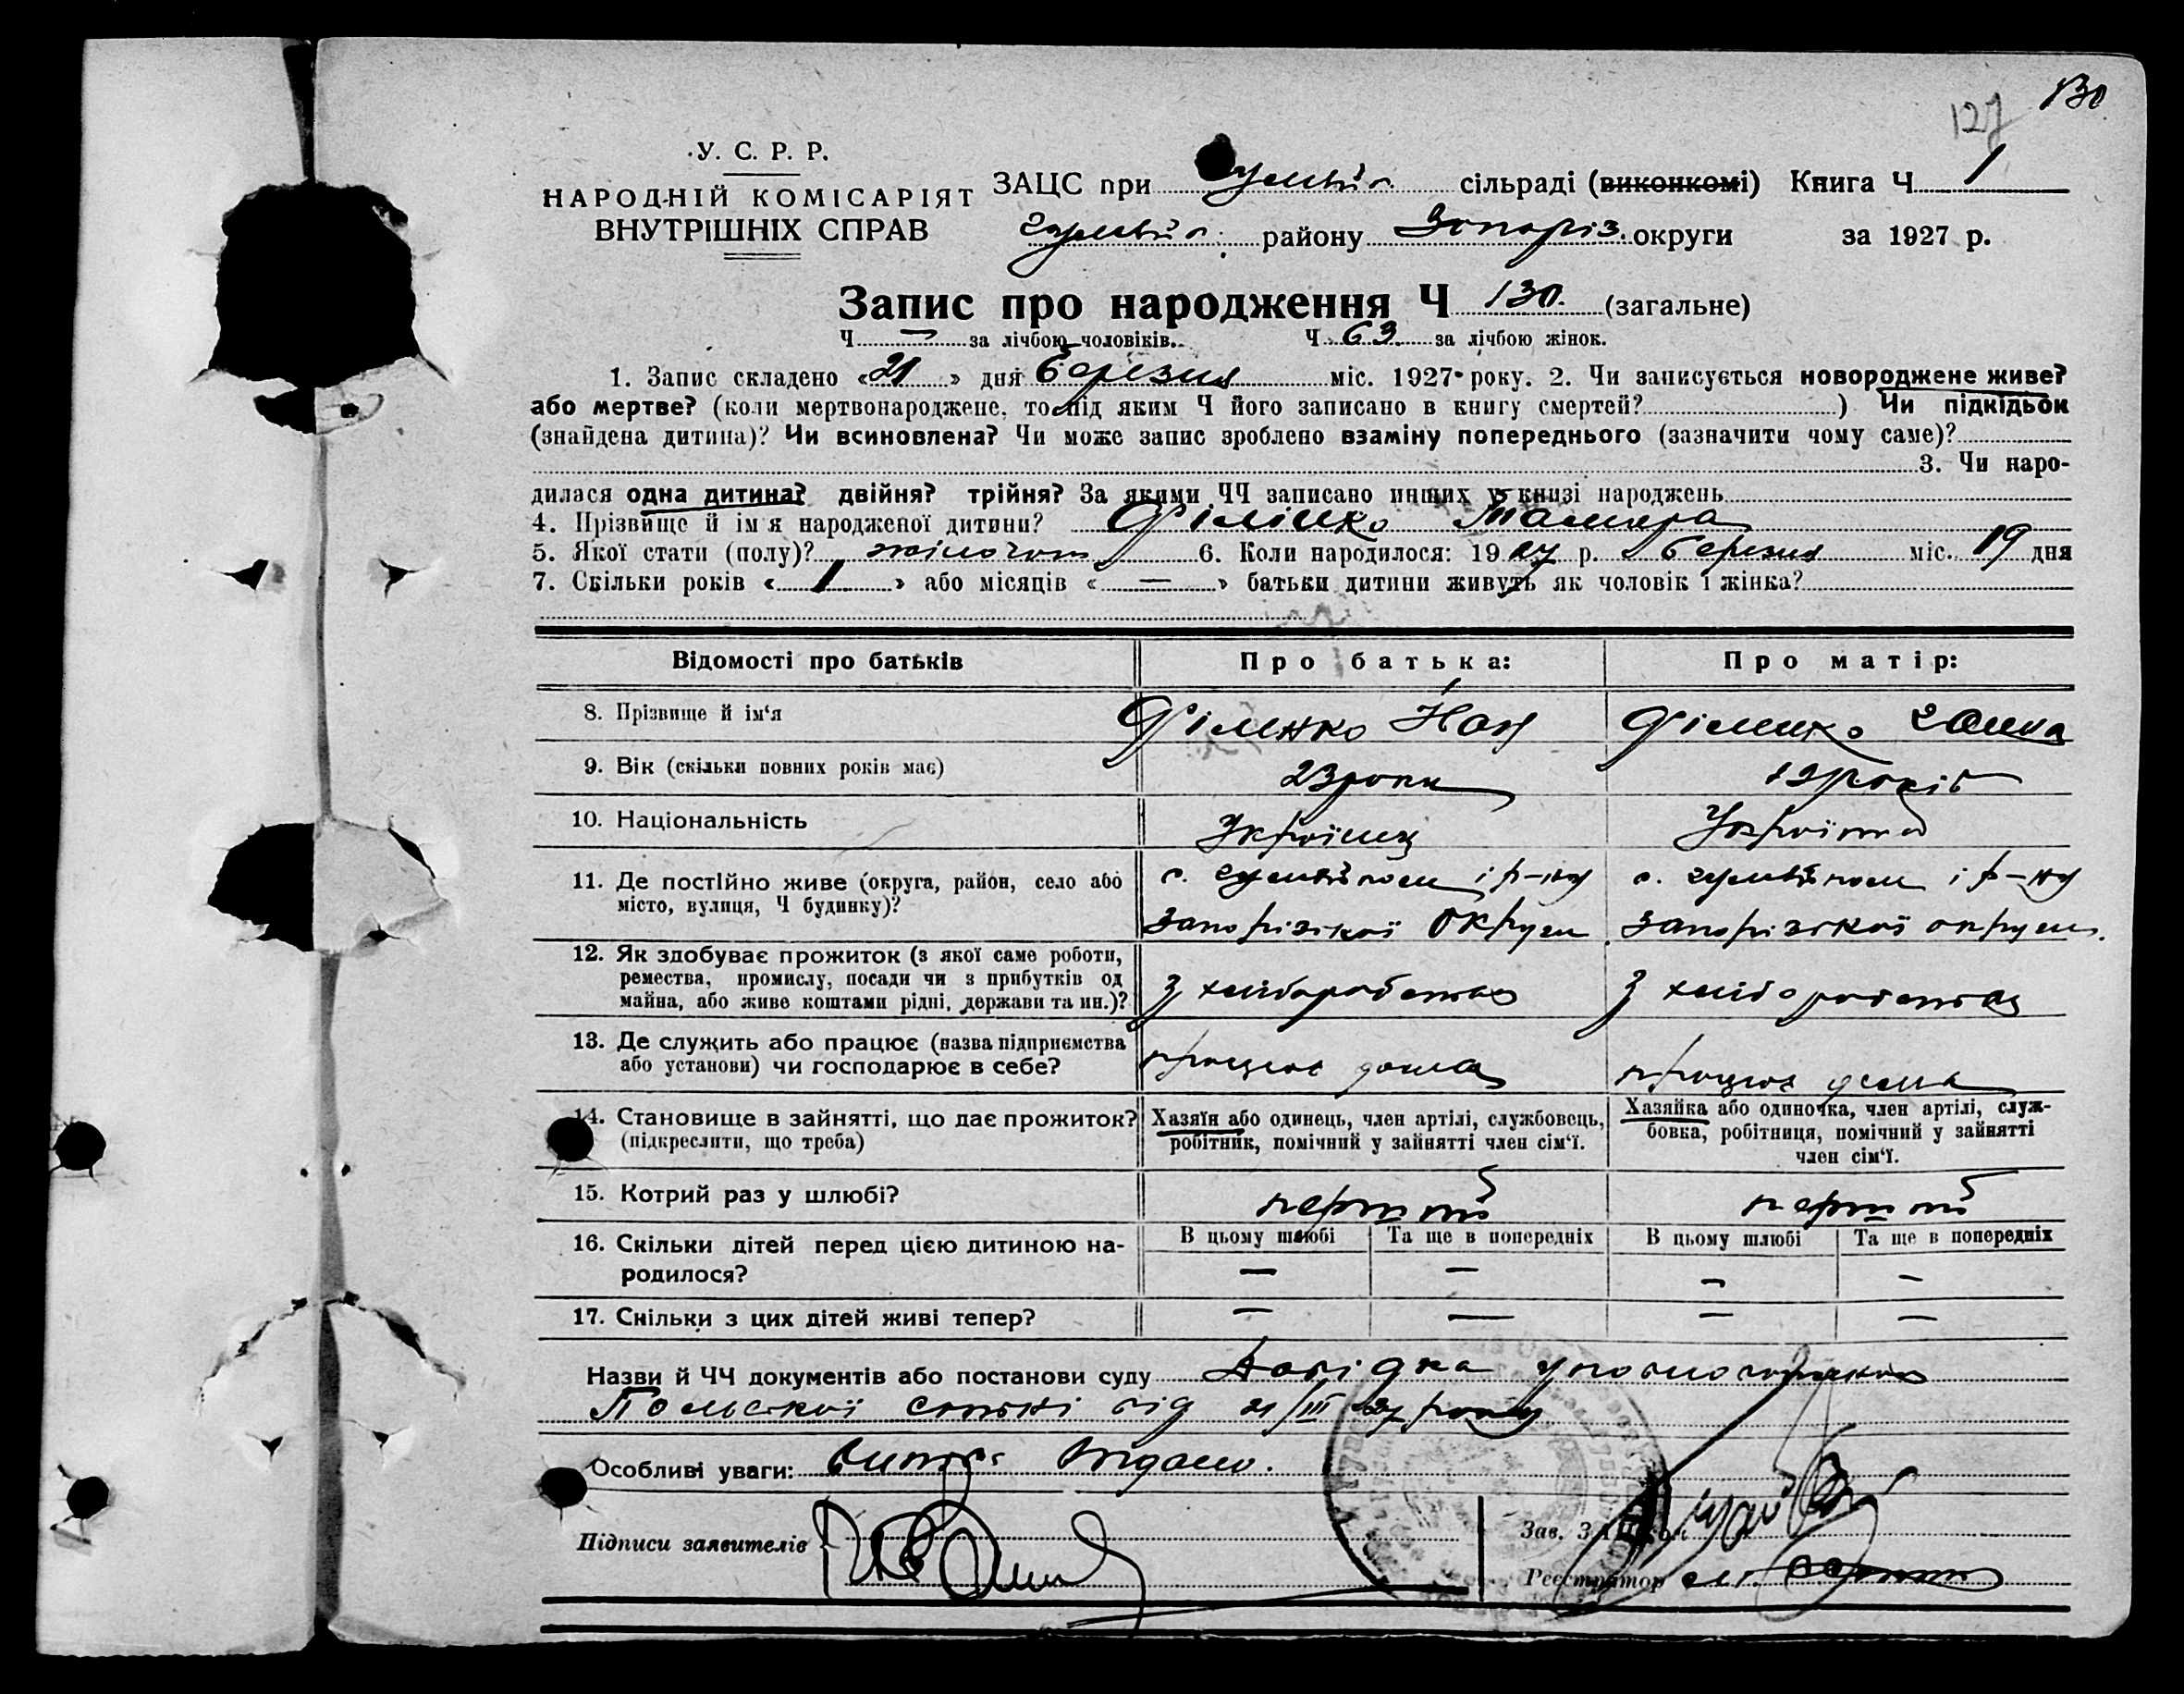 130
127
У. С. Р. Р.
НАРОДНІЙ КОМІСАРІЯТ
ВНУТРІШНІХ СПРАВ
ЗАЦС при сільраді (виконкомі) Книга Ч 1
району Запоріз. округи за 1927 р.
Запис про народження Ч 130. (загальне)
Ч — за лічбою чоловіків. Ч 63 за лічбою жінок.
1. Запис складено «21» дня березня міс. 1927 року. 2. Чи записується новороджене живе?
або мертве? (коли мертвонароджене, то під яким Ч його записано в книгу смертей? ) Чи підкідьок
(знайдена дитина)? Чи всиновлена? Чи може запис зроблено взаміну попереднього (зазначити чому саме)?
3. Чи наро-
дилася одна дитина? двійня? трійня? За якими ЧЧ записано инших у книзі народжень
4. Прізвище й ім'я народженої дитини? Філінко Тамара
5. Якої стати (полу)? жіночот 6. Коли народилося: 1927 р. березня міс. 19 дня
7. Скільки років «1» або місяців «—» батьки дитини живуть як чоловік і жінка?
Відомості про батьків Про батька: Про матір:
8. Прізвище й ім'я Філенко Філенко Ганна
9. Вік (скільки повних років має) 23 роки 19 років
10. Національність Українец Українка
11. Де постійно живе (округа, район, село або с. і р-ну с. і р-ну
місто, вулиця, Ч будинку)? Запорізької Округи Запорізької округи.
12. Як здобуває прожиток (з якої саме роботи,
ремества, промислу, посади чи з прибутків од
майна, або живе коштами рідні, держави та ин.)? З хліборобства З хліборобства
13. Де служить або працює (назва підприємства
або установи) чи господарює в себе? працює дома працює дома
14. Становище в зайнятті, що дає прожиток? Хазяїн або одинець, член артілі, службовець, Хазяйка або одиночка, член артілі, служ-
(підкреслити, що треба) робітник, помічний у зайнятті член сім'ї. бовка, робітниця, помічний у зайнятті
член сім'ї.
15. Котрий раз у шлюбі? перший перший
16. Скільки дітей перед цією дитиною на- В цьому шлюбі Та ще в попередніх В цьому шлюбі Та ще в попередніх
родилося? — — — —
17. Скільки з цих дітей живі тепер? — — — —
Назви й ЧЧ документів або постанови суду Довідка уповноваженого
Польської сотні від 21/III 27 року
Особливі уваги: Витяг Видано.
Підписи заявителів
Зав. ЗАЦСом
Реєстратор